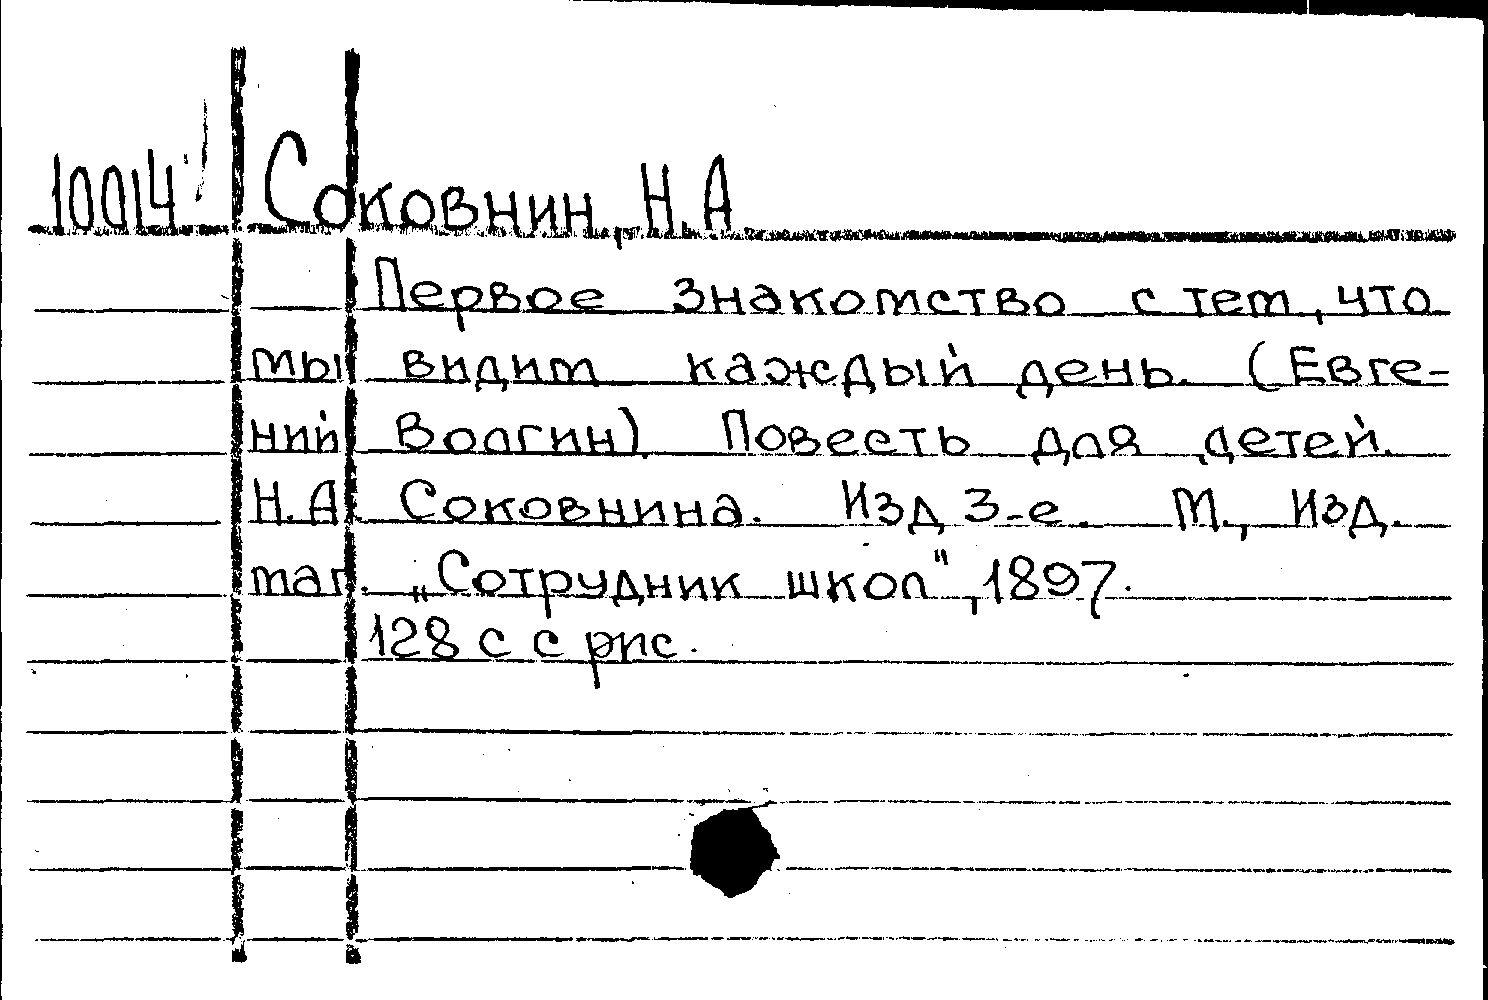 10014 Соковнин, Н.А
Первое знакомство с тем, что
мы видим каждый день. (Евге-
ний Волгин). Повесть для детей.
Н.А. Соковнина. Изд 3-е. М., Изд.
маг. „Сотрудник школ", 1897.
128 с с рис.